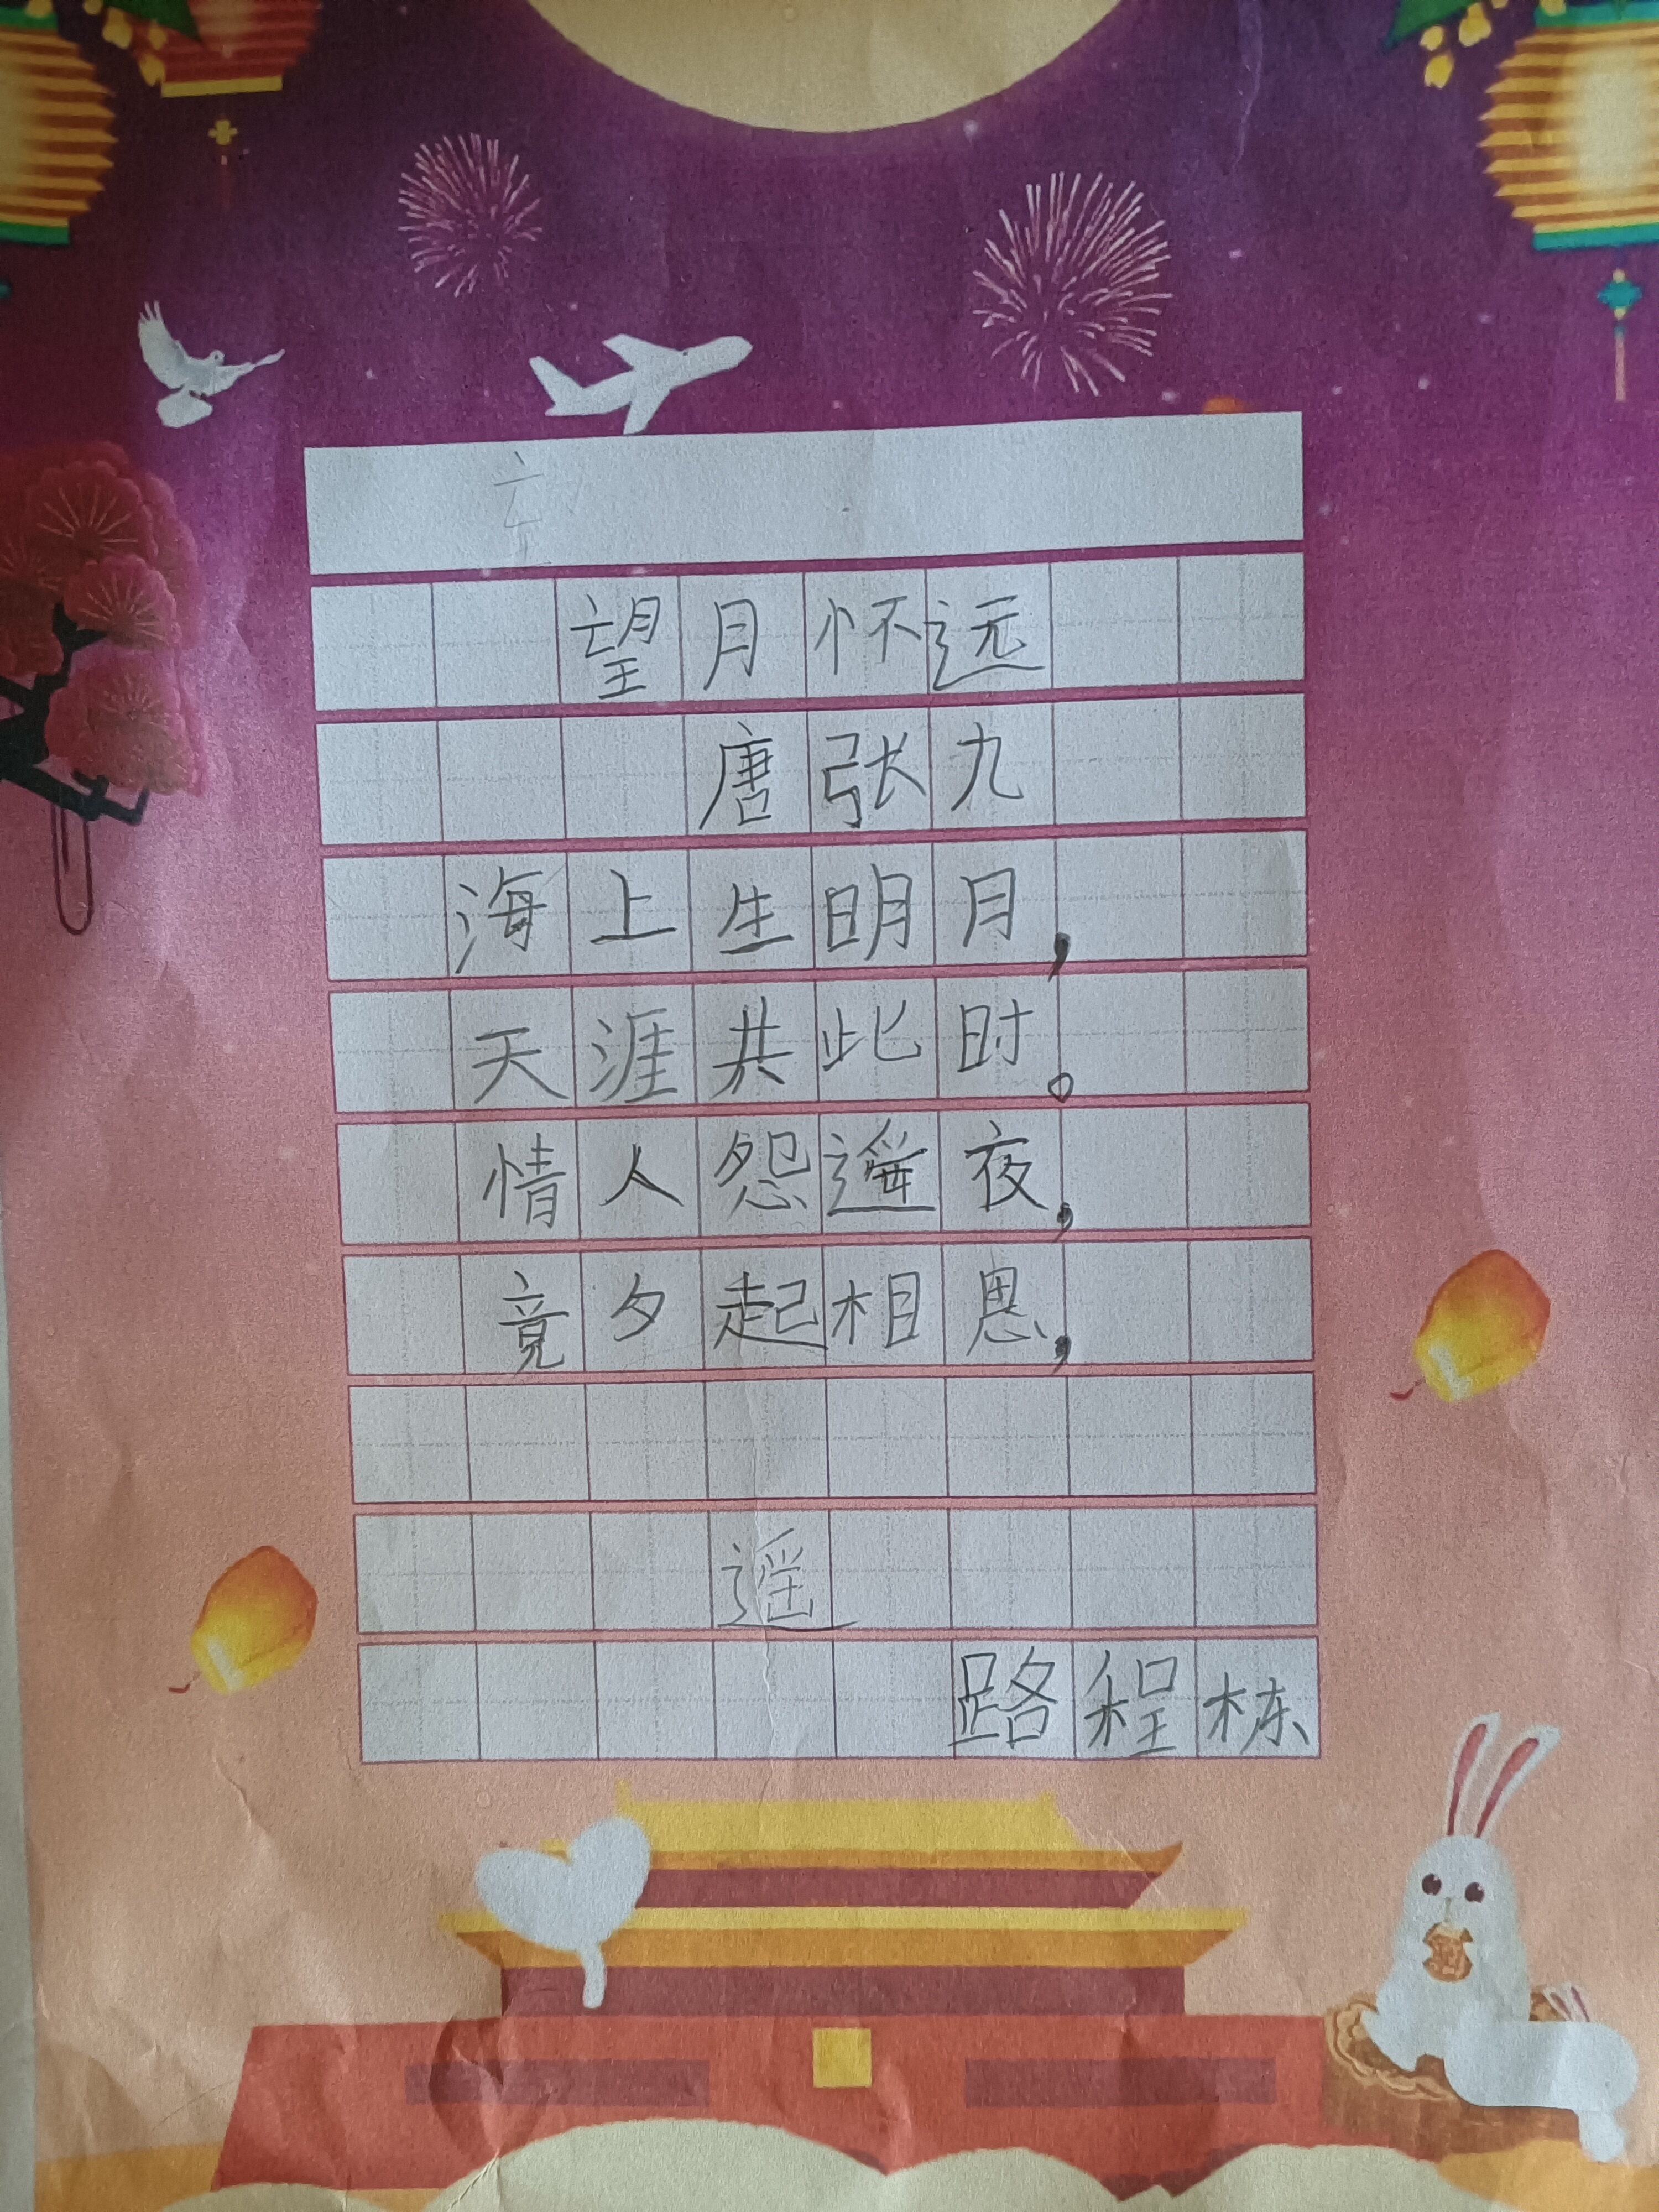 望月怀远
唐张九
海上生明月，
天涯共此时。
情人怨遥夜，
竟夕起相思，
遥
路程栋